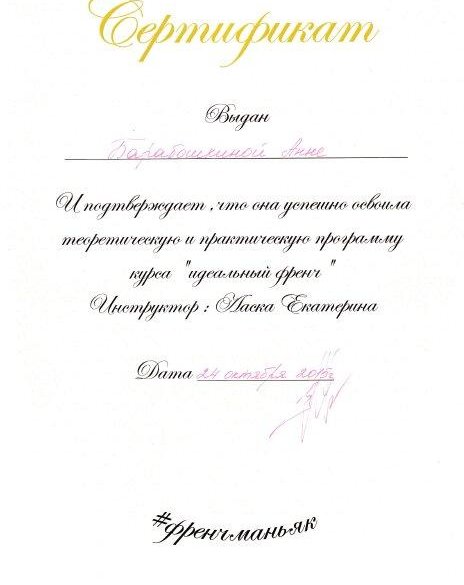 Сертификат
Выдан
Барабошкиной Анне
И подтверждает ,что она успешно освоила
теоретическую и практическую программу
курса "идеальный френч"
Инструктор : Ласка Екатерина
Дата 24 октября 2015г
#френчманьяк